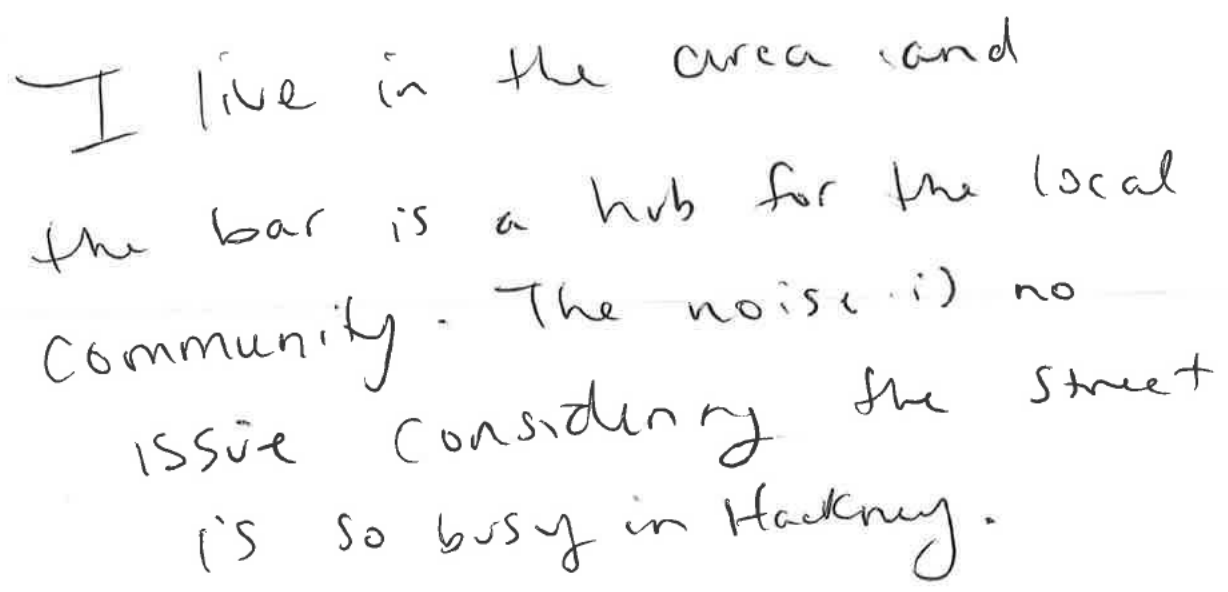 I live in the area and
the bar is a hub for the local
Community. The noise is no
issue considering the street
is so busy in Hackney.